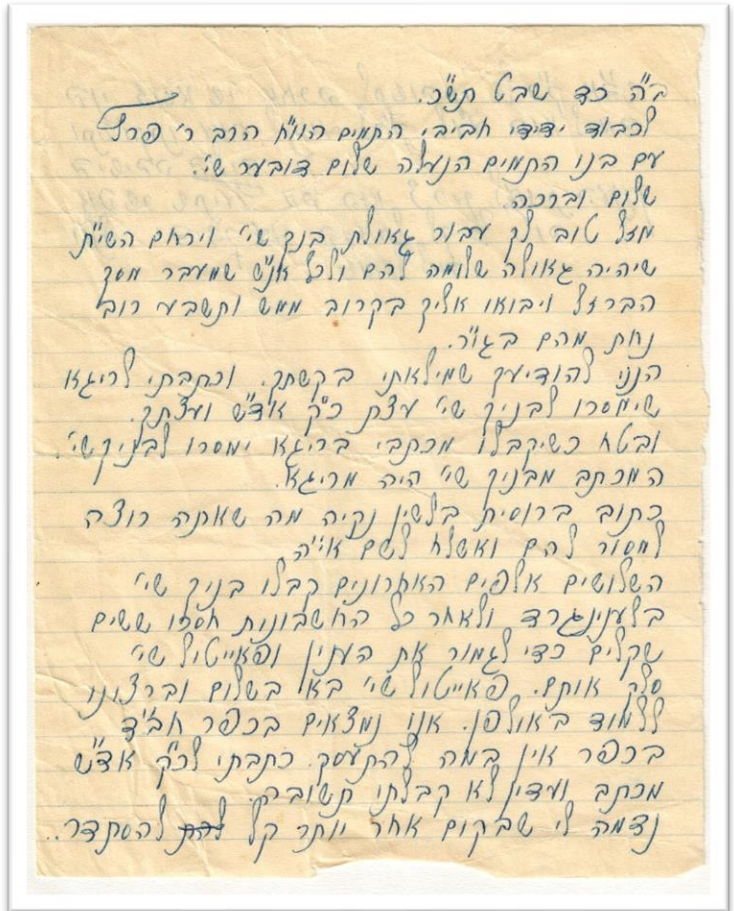 ב"ה כד שבט תש"כ.
לכבוד ידידי חביבי התמים הוו"ח הרב ר' פרץ
עם בנו התמים הנעלה שלום דובער שי'.
שלום וברכה
מזל טוב לך עבור גאולת בנך שי' וירחם השי"ת
שיהיה גאולה שלומה להם ולכל אנ"ש שמעבר מסך
הברזל ויבואו אליך בקרוב ממש ותשבע רוב
נחת מהם בגו"ר.
הנני להודיעך שמילאתי בקשתך. וכתבתי לריגא
שימסרו לבניך שי' עצת כ"ק אד"ש ועצתך.
ובטח כשיקבלו מכתבי בריגא ימסרו לבניך שי'.
המכתב מבניך שי' היה מריגא.
כתוב ברוסית בלשון נקיה מה שאתה רוצה
למסור להם ואשלח לשם אי"ה
השלושים אלפים האחרונים קבלו בניך שי'
בלענינגרד ולאחר כל החשבונות חסרו ששים
שקלים כדי לגמור את הענין ופאייטיל שי'
סלק אותם. פאייטול שי' בא בשלום וברצונו
ללמוד באולפן. אנו נמצאים בכפר חב"ד
בכפר אין במה להתעסק. כתבתי לכ"ק אד"ש
מכתב ועדין לא קבלתי תשובה.
נדמה לי שבקום אחר יותר קל להסתדר..